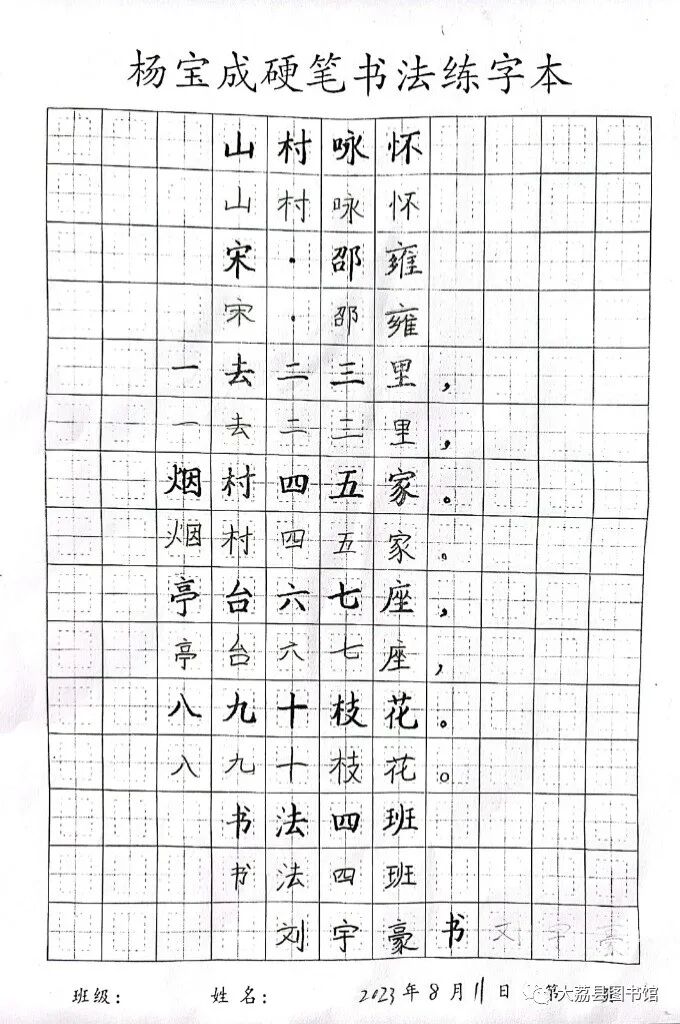 杨宝成硬笔书法练字本
山村咏怀
山村咏怀
宋·邵雍
宋·邵雍
一去二三里，
一去二三里，
烟村四五家。
烟村四五家。
亭台六七座，
亭台六七座，
八九十枝花。
八九十枝花。
书法四班
书法四班
刘宇豪书
班级： 姓名： 2023年8月11日 第
大荔县图书馆